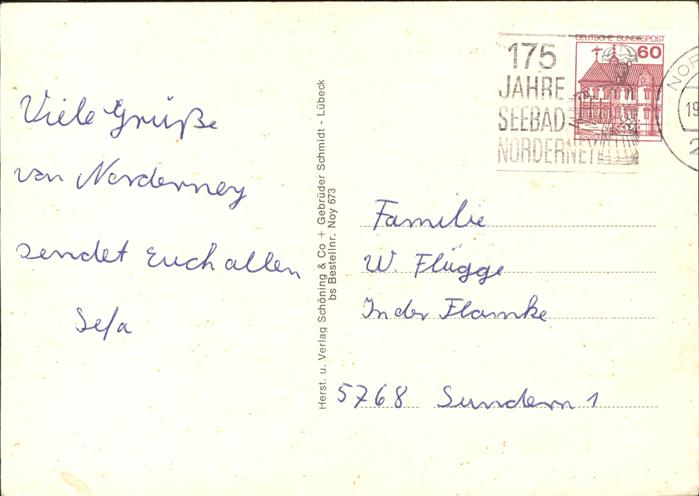 Viele Grüße
von Norderney
sendet Euch allen
Sefa
Herst. u. Verlag Schöning & Co + Gebrüder Schmidt - Lübeck
bs Bestellnr. Noy 673
175
JAHRE
SEEBAD
NORDERNEY
DEUTSCHE BUNDESPOST
60
NOR
19
2
Familie
W. Flügge
In der Flamke
5768 Sundern 1